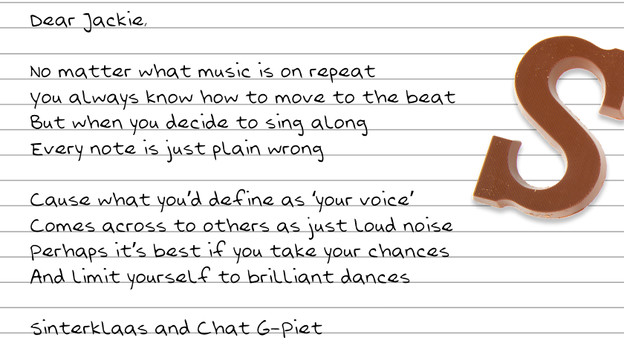 Dear Jackie,
No matter what music is on repeat
You always know how to move to the beat
But when you decide to sing along
Every note is just plain wrong
Cause what you'd define as 'your voice'
Comes across to others as just loud noise
Perhaps it's best if you take your chances
And limit yourself to brilliant dances
Sinterklaas and Chat G-Piet